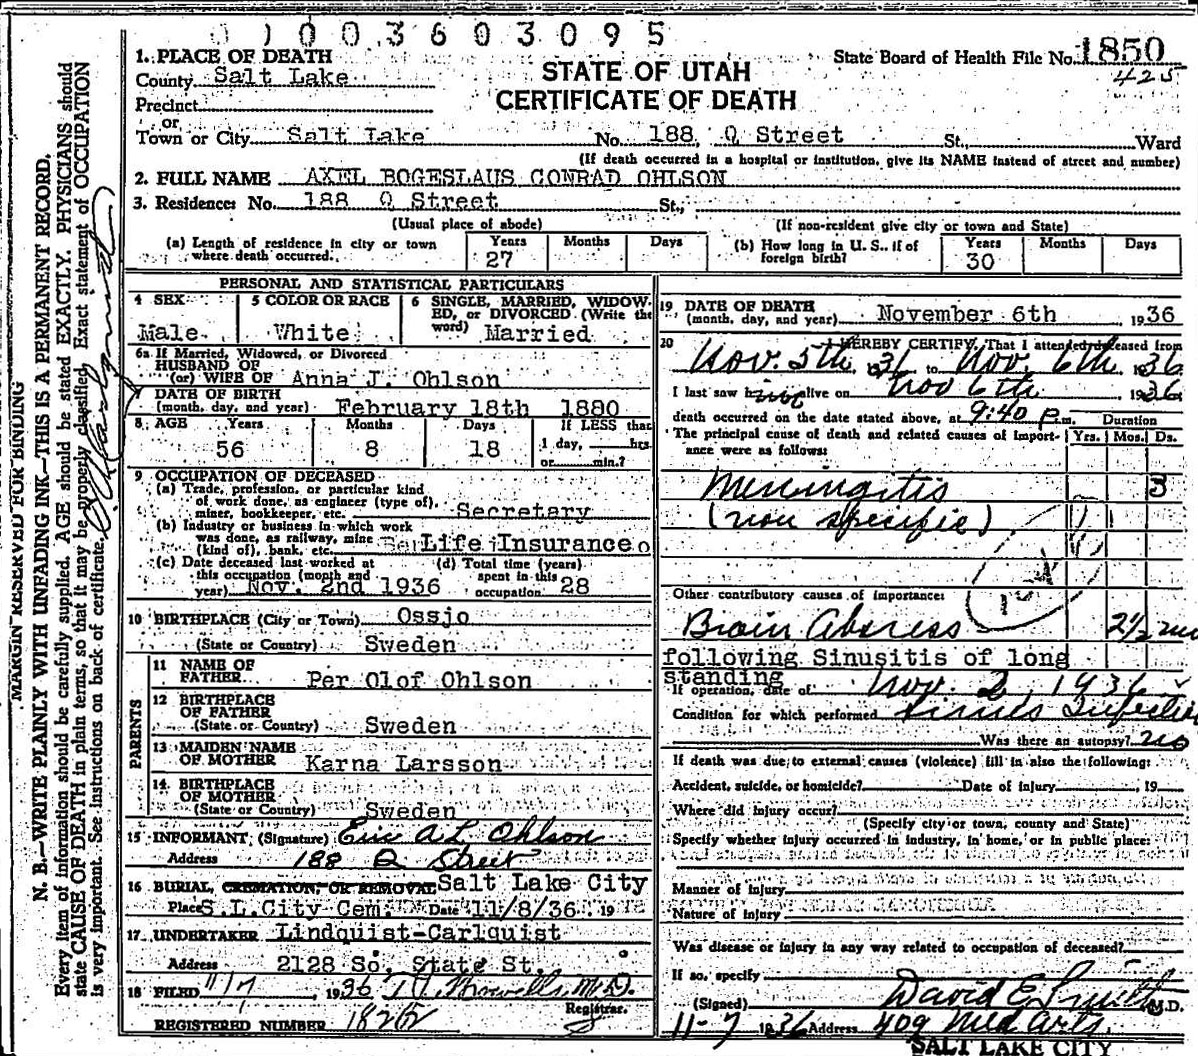 0 1 0 0 3 6 0 3 0 9 5
1. PLACE OF DEATH
County Salt Lake
Precinct
or
Town or City Salt Lake No. 188 Q Street St., Ward
STATE OF UTAH
CERTIFICATE OF DEATH
State Board of Health File No. 1850
425
(If death occurred in a hospital or institution, give its NAME instead of street and number)
2. FULL NAME AXEL BOGESLAUS CONRAD OHLSON
3. Residence: No. 188 Q Street St.,
(Usual place of abode) (If non-resident give city or town and State)
(a) Length of residence in city or town where death occurred. Years 27 Months Days
(b) How long in U. S., if of foreign birth? Years 30 Months Days
PERSONAL AND STATISTICAL PARTICULARS
4 SEX Male
5 COLOR OR RACE White
6 SINGLE, MARRIED, WIDOWED, or DIVORCED (Write the word) Married
6a If Married, Widowed, or Divorced
HUSBAND OF
(or) WIFE OF Anna J. Ohlson
7 DATE OF BIRTH
(month, day, and year) February 18th 1880
8 AGE Years 56 Months 8 Days 18
If LESS than 1 day, hrs. or min.?
9 OCCUPATION OF DECEASED
(a) Trade, profession, or particular kind
of work done, as engineer (type of),
miner, bookkeeper, etc. Secretary
(b) Industry or business in which work
was done, as railway, mine
(kind of), bank, etc. Life Insurance Co
(c) Date deceased last worked at
this occupation (month and
year) Nov. 2nd 1936
(d) Total time (years)
spent in this
occupation 28
10 BIRTHPLACE (City or Town) Ossjo
(State or Country) Sweden
PARENTS
11 NAME OF
FATHER Per Olof Ohlson
12 BIRTHPLACE
OF FATHER
(State or Country) Sweden
13 MAIDEN NAME
OF MOTHER Karna Larsson
14 BIRTHPLACE
OF MOTHER
(State or Country) Sweden
15 INFORMANT (Signature) Eric A L Ohlson
Address 188 Q Street
16 BURIAL, CREMATION, OR REMOVAL Salt Lake City
Place S.L.City Cem. Date 11/8/36 19
17 UNDERTAKER Lindquist-Carlquist
Address 2128 So. State St.
18 FILED 11/7 1936 M.D.
Registrar.
REGISTERED NUMBER 1826
19 DATE OF DEATH
(month, day, and year) November 6th 1936
20 I HEREBY CERTIFY, That I attended deceased from
Nov. 5th, 1936 to Nov. 6th 1936
I last saw him alive on Nov 6th, 1936
death occurred on the date stated above, at 9:40 p.m. Duration
The principal cause of death and related causes of importance were as follows: Yrs. Mos. Ds.
Meningitis 3
(non specific)
Other contributory causes of importance:
Brain Abscess 2½ mo
following Sinusitis of long
standing
If operation, date of Nov. 2, 1936
Condition for which performed Sinus Infection
Was there an autopsy? no
If death was due to external causes (violence) fill in also the following:
Accident, suicide, or homicide? Date of injury 19
Where did injury occur?
(Specify city or town, county and State)
Specify whether injury occurred in industry, in home, or in public place:
Manner of injury
Nature of injury
Was disease or injury in any way related to occupation of deceased?
If so, specify
(Signed) David E. Smith M.D.
11-7 1936 Address 409 Med Arts.
SALT LAKE CITY
MARGIN RESERVED FOR BINDING
N. B.—WRITE PLAINLY WITH UNFADING INK—THIS IS A PERMANENT RECORD.
Every item of information should be carefully supplied. AGE should be stated EXACTLY. PHYSICIANS should
state CAUSE OF DEATH in plain terms, so that it may be properly classified. Exact statement of OCCUPATION
is very important. See instructions on back of certificate.